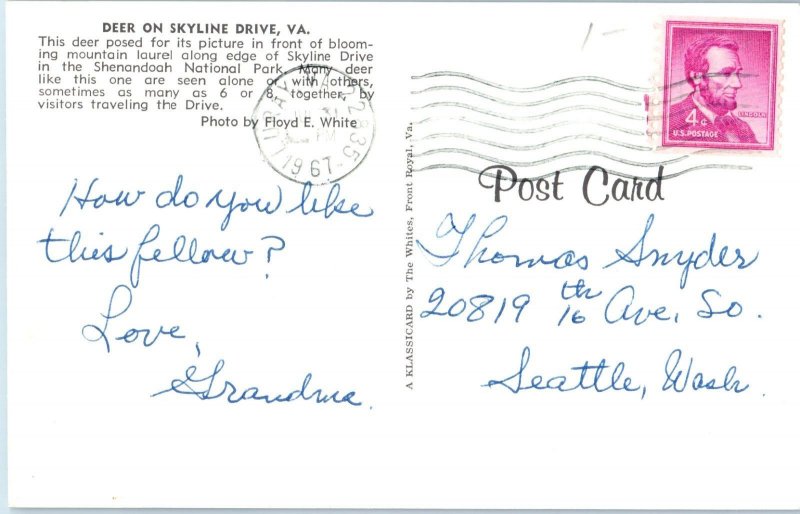 DEER ON SKYLINE DRIVE, VA.
This deer posed for its picture in front of bloom-
ing mountain laurel along edge of Skyline Drive
in the Shenandoah National Park. Many deer
like this one are seen alone or with others,
sometimes as many as 6 or 8, together, by
visitors traveling the Drive.
Photo by Floyd E. White
LURAY, VA. 22835
PM
1967
How do you like
this fellow?
Love,
Grandma.
A KLASSICARD by The Whites, Front Royal, Va.
1-
LINCOLN
4¢
U.S. POSTAGE
Post Card
Thomas Snyder
20819 16th Ave. So.
Seattle, Wash.